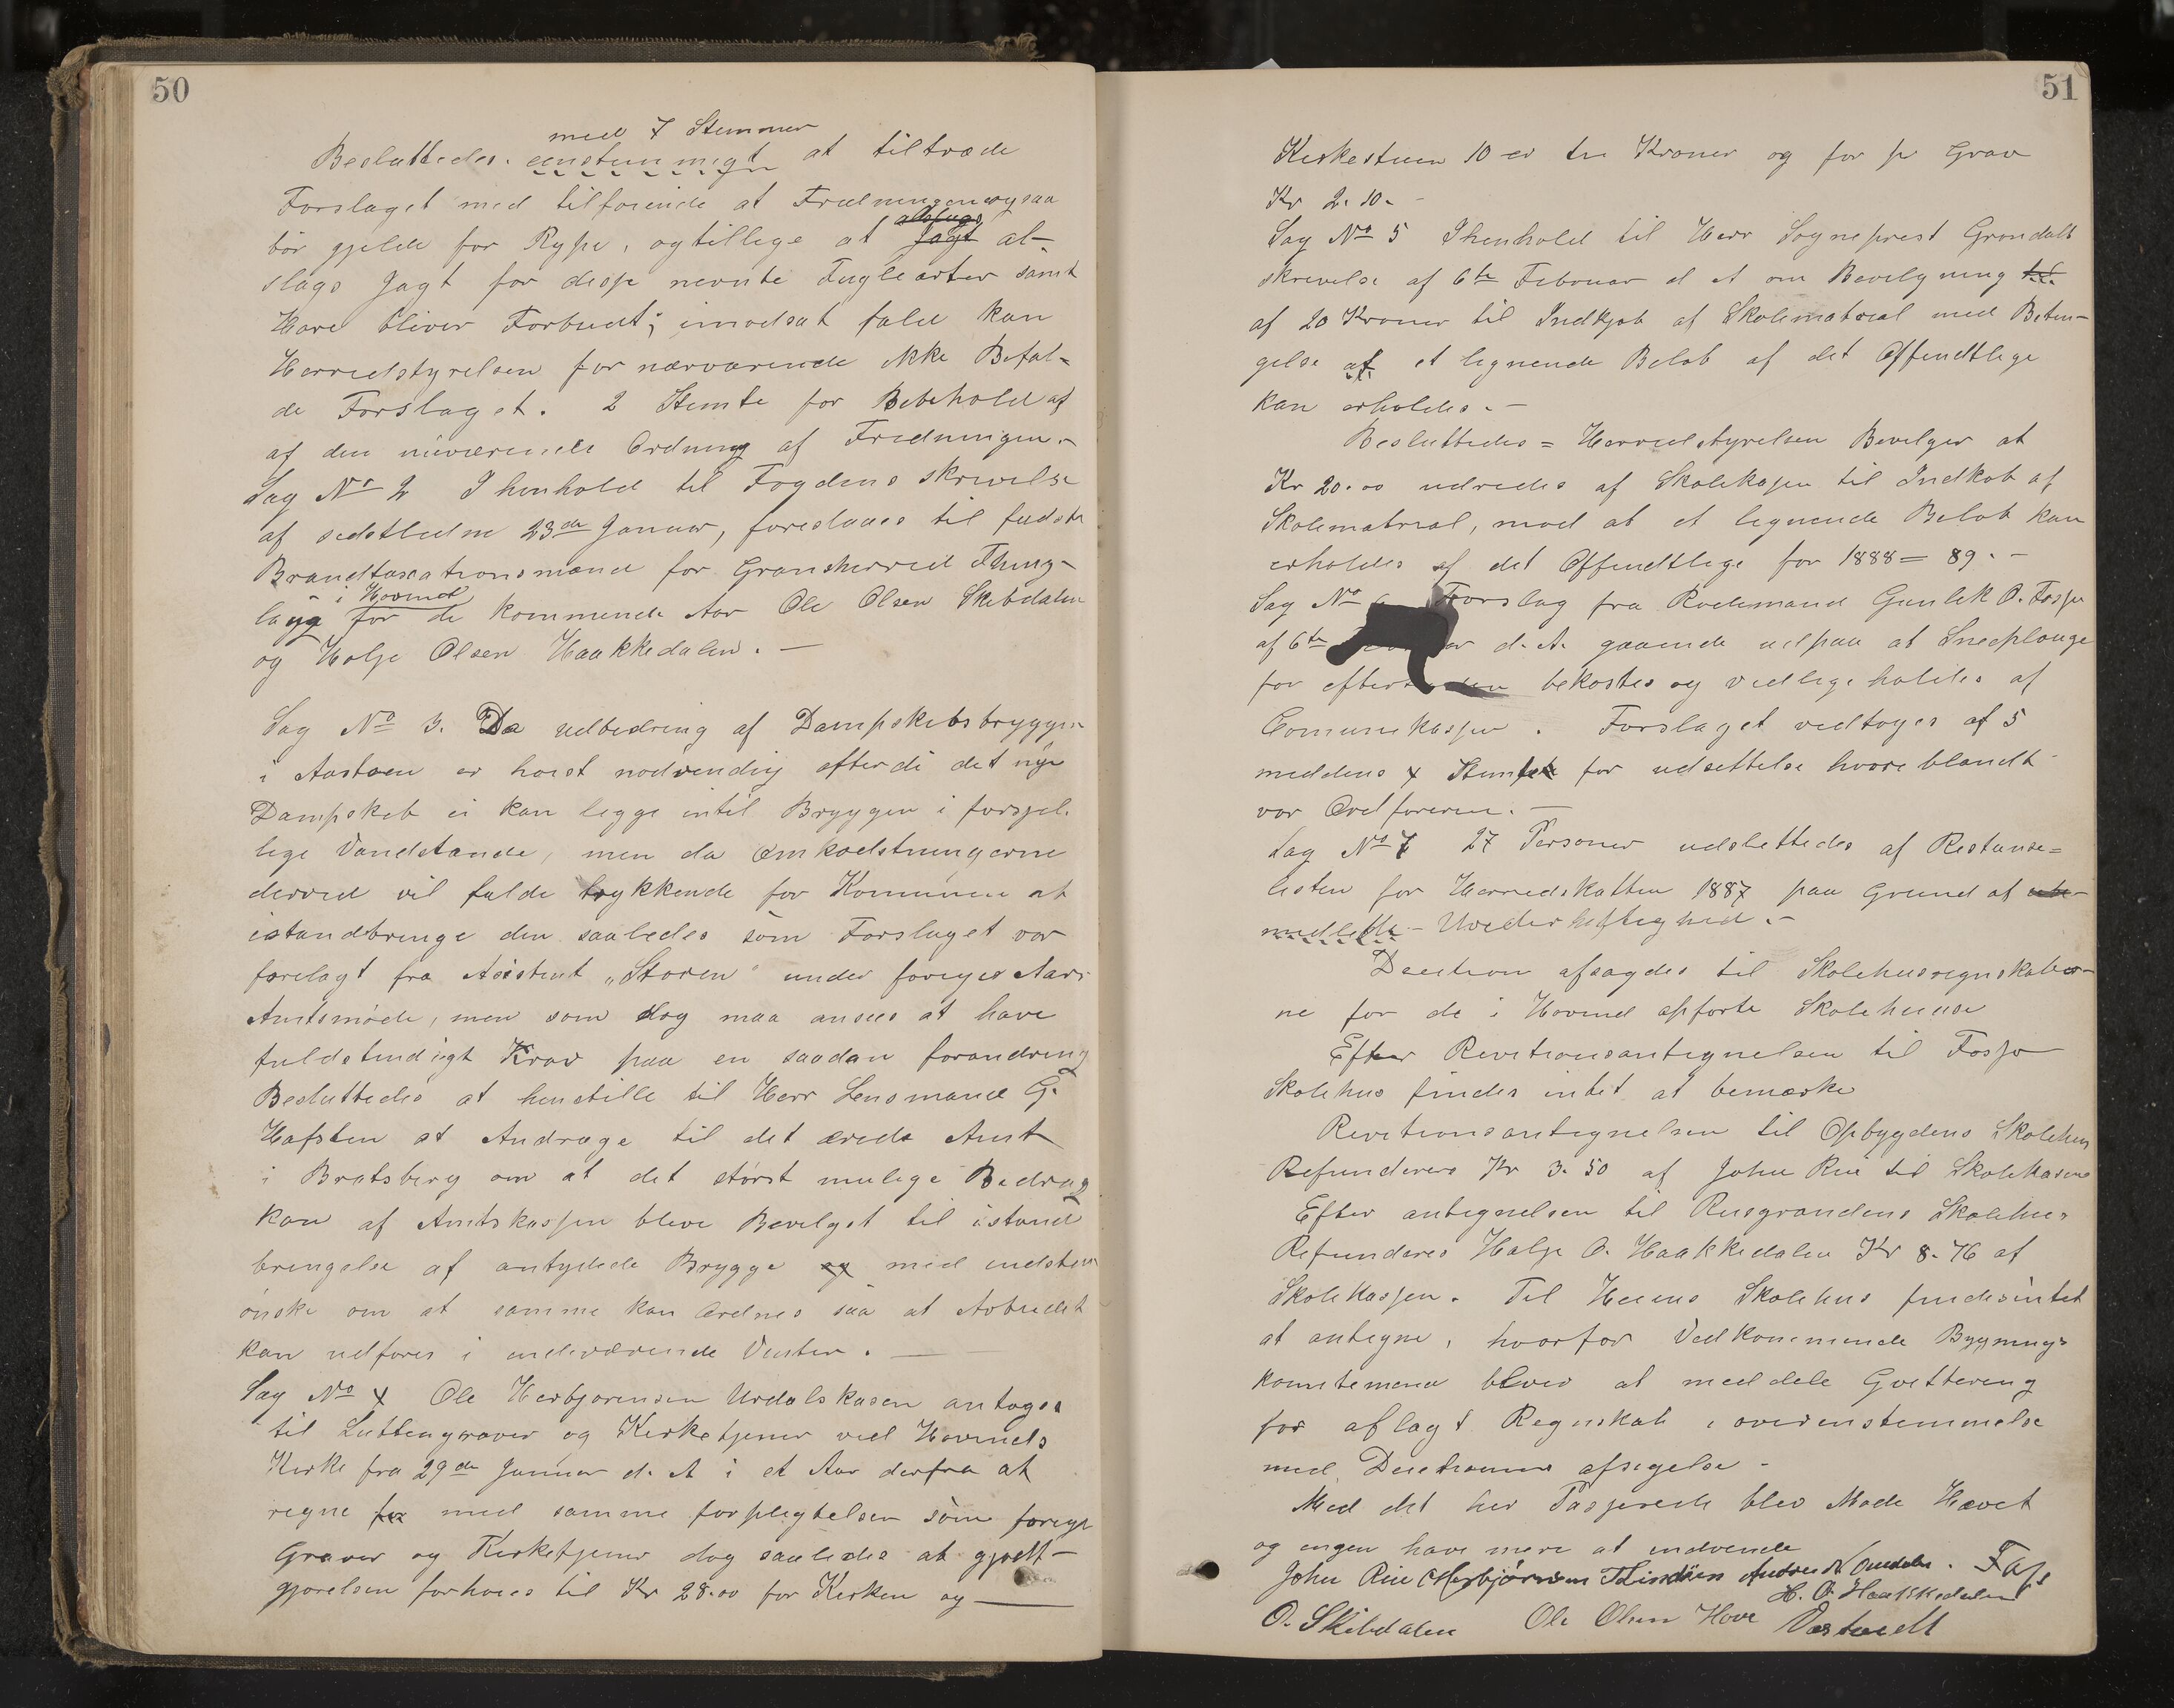 50
med 7 Stemmer
Besluttedes. eenstemmigt at tiltræde
Forslaget med tilføiende at Fredningen ogsaa
bör gjelde for Rype, og tillige at Jagt al-
slags Jagt for disse nevnte Fuglearter samt
Hare bliver Forbudt; imodsat fald kan
Herredstyrelsen for nærværende ikke Befal-
de Forslaget. 2 Stemte for Bebehold af
af den nuværende Ordning af Fredningen.-
Sag No 2 I henhold til Fogdens skrivelse
af sidstledne 23de Januar, foreslaaes til
Brandtaxationsmænd for Gransherred Thing-
i Hovind
lagg for de kommende Aar Ole Olsen Skibdalen
og Holje Olsen Haakkedalen. —
Sag No 3. Da udbedring af Dampskibsbryggen
i Aastøen er høist nodvendig efterdi det nye
Dampskib ei kan legge intil Bryggen i forsjel-
lige Vandstande, men da Omkostningerne
derved vil falde trykkende for Komunen at
istandbringe den saaledes som Forslaget var
forelagt fra Asistent „Storen" under forrige Aars
Amtsmöde, men som dog maa ansees at have
fuldstendigt Krav paa en saadan forandring
Besluttedes at henstille til Herr Lensmand G.
Hafsten at Andrage til det ærede Amt
i Bratsberg om at det störst mulige Bedrag
kan af Amtskassen blive Bevilget til istand
bringelse af antydede Brygge og med
önske om at samme kan Ordnes saa at Arbeidet
kan udføres i indeværende Vinter. —
Sag No 4 Ole Herbjørensen Urdalskaasen antoges
til Luttengraver og Kirketjener ved Hovinds
Kirke fra 29de Januar d. A i et Aar derfra at
regne for med samme forplegtelser som forrige
Graver og Kirketjener dog saaledes at gjodt-
gjørelsen forhøies til Kr 28.00 for Kirken og —
51
Kirkestuen 10 er tie Kroner og for pr Grav
Kr 2.10.-
Sag No 5 I henhold til Herr Sogneprest Grøndals
skrivelse af 6te Februar d A om Bevilgning til
af 20 Kroner til Indkjøb af Skolematrial med Beten-
gelse af et lignende Beløb af det Offendtlige
kan erholdes.—
Besluttedes = Herredstyrelsen Bevilger at
Kr 20.00 udredes af Skolekassen til Indkøb af
Skolematrial, mod at et lignende Beløb kan
erholdes af det Offendtlige for 1888=89.-
Sag No 6 Forslag fra Rodemand Gunlek O. Fosse
af 6te d. A. gaaende ud paa at Sneeplouge
for bekostes og vedligeholdes af
Comunekassen. Forslaget vedtoges af 5
meddens 4 Stemte for udsettelse hvoreblandt
var Ordføreren. —
Sag No 7 27 Personer udslettedes af Restanse=
listen for Herredskatten 1887 paa Grund af
- Uvederheftighed.-
Decition afsagdes til Skolehusregnskaber-
ne for de i Hovind opførte Skolehuuse
Efter Revitionsantegnelsen til Fosse
Skolehus findes intet at bemærke
Revitionsantegnelsen til Opbygdens Skolehus
Refunderes Kr 3.50 af John Rue til Skolekassen
Efter antegnelsen til Rusgrandens Skolehus
Refunderes Holje O. Haakkedalen Kr 8.76 af
Skolekassen. Til Skolehus findes intet
at antegne, hvorfor Vedkommende Bygnings
komitemend bliver at meddele Qvittering
for aflagt Regnskab i overenstemmelse
med Decitionens afsigelse -
Med det her Passerede blev Møde Hævet
og ingen have mere at indvende
John Rue Andres N. Fosse
H. O. Haakkedalen
O. Skibdalen Ole Olsen Hove